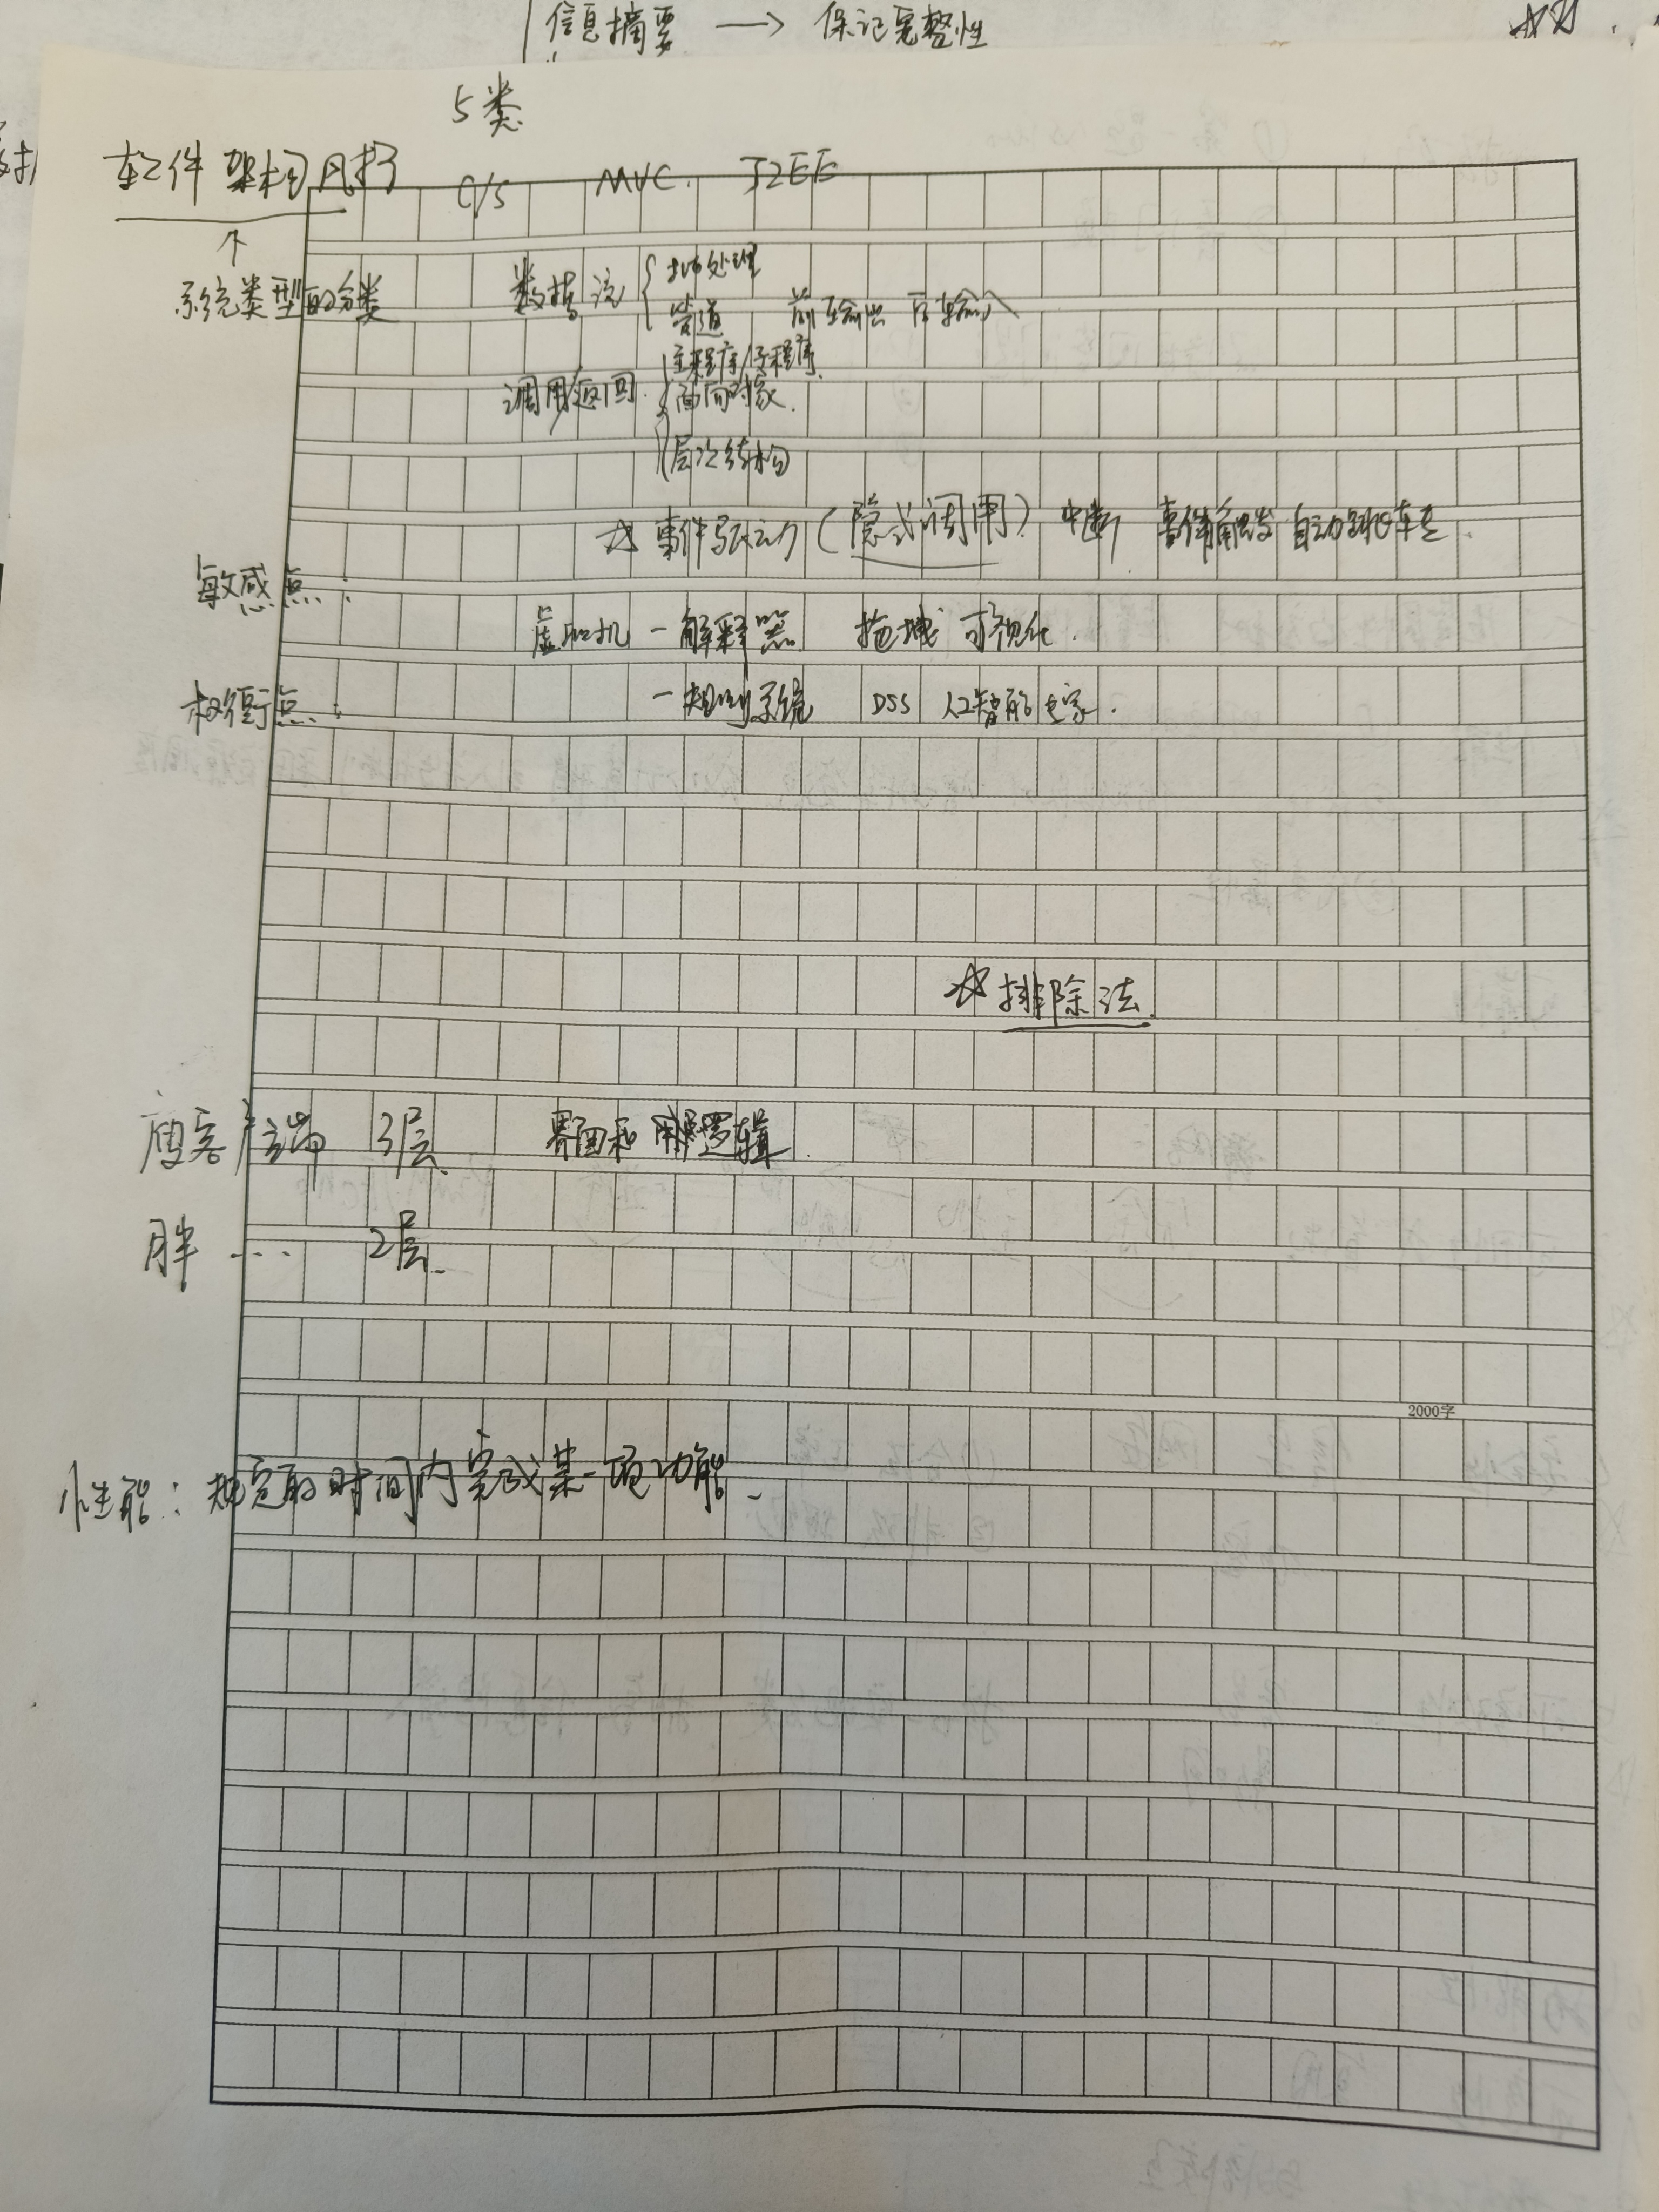 信息摘要 → 保证完整性
5类
软件架构风格 C/S MVC. J2EE
↑
系统类型的分类
数据流 { 批处理
管道 前输出 后输入
调用/返回 { 主程序/子程序.
面向对象.
层次结构
☆ 事件驱动 (隐式调用) 中断 事件触发 自动
敏感点:
虚拟机 - 解释器 可视化.
权衡点:
- 规则系统 DSS 人工智能 专家.
☆ 排除法.
瘦客户端 3层 界面和 逻辑.
胖 … 2层.
2000字
性能: 规定的时间内完成某一项功能.